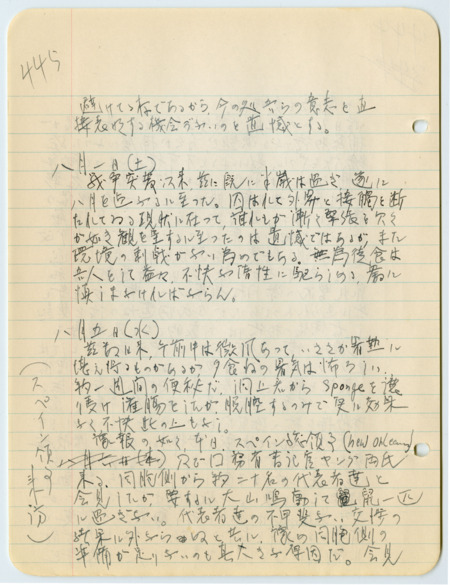 445
避けてる存であるから、今の処吾らの意志を直
接表明する機会がないのを遺憾とする。
八月一日(土)
戦争突発以来、茲に既に半歳は過ぎ、遂に
八月を迎へるに至った。囚はれて外界と接触を断
たれてゐる現状に在って、誰れもが漸く緊張を欠く
が如き観を呈するに至ったのは遺憾ではあるが、また
環境の刺戟がない為めでもある。無為徒食は
吾人として益々、不快な惰性に駆らしめる、厳に
慎しまなければならん。
八月五日(水)
茲数日来、午前中は微風あって、いささか暑熱に
堪え得るものがあるが、夕食ねの暑気は怖ろしい。
約一週間の便秘だ。同士元から spongeを
浣腸をしたが、脱腔するのみで更に効果
なく不快此の上もなし。
予報の如く、本日、スペイン総領事(New Orleans)
及び国務省書記官ヤング両氏
来る。同胞側から約二十名の代表者達と
会見したが、要するに大山鳴動して鼠一匹
に過ぎない。代表者達の不甲斐ない交渉の
結果に外ならぬと共に、同胞側の
準備が足りないのも其大きな原因だ。会見
(スペイン領事来訪)